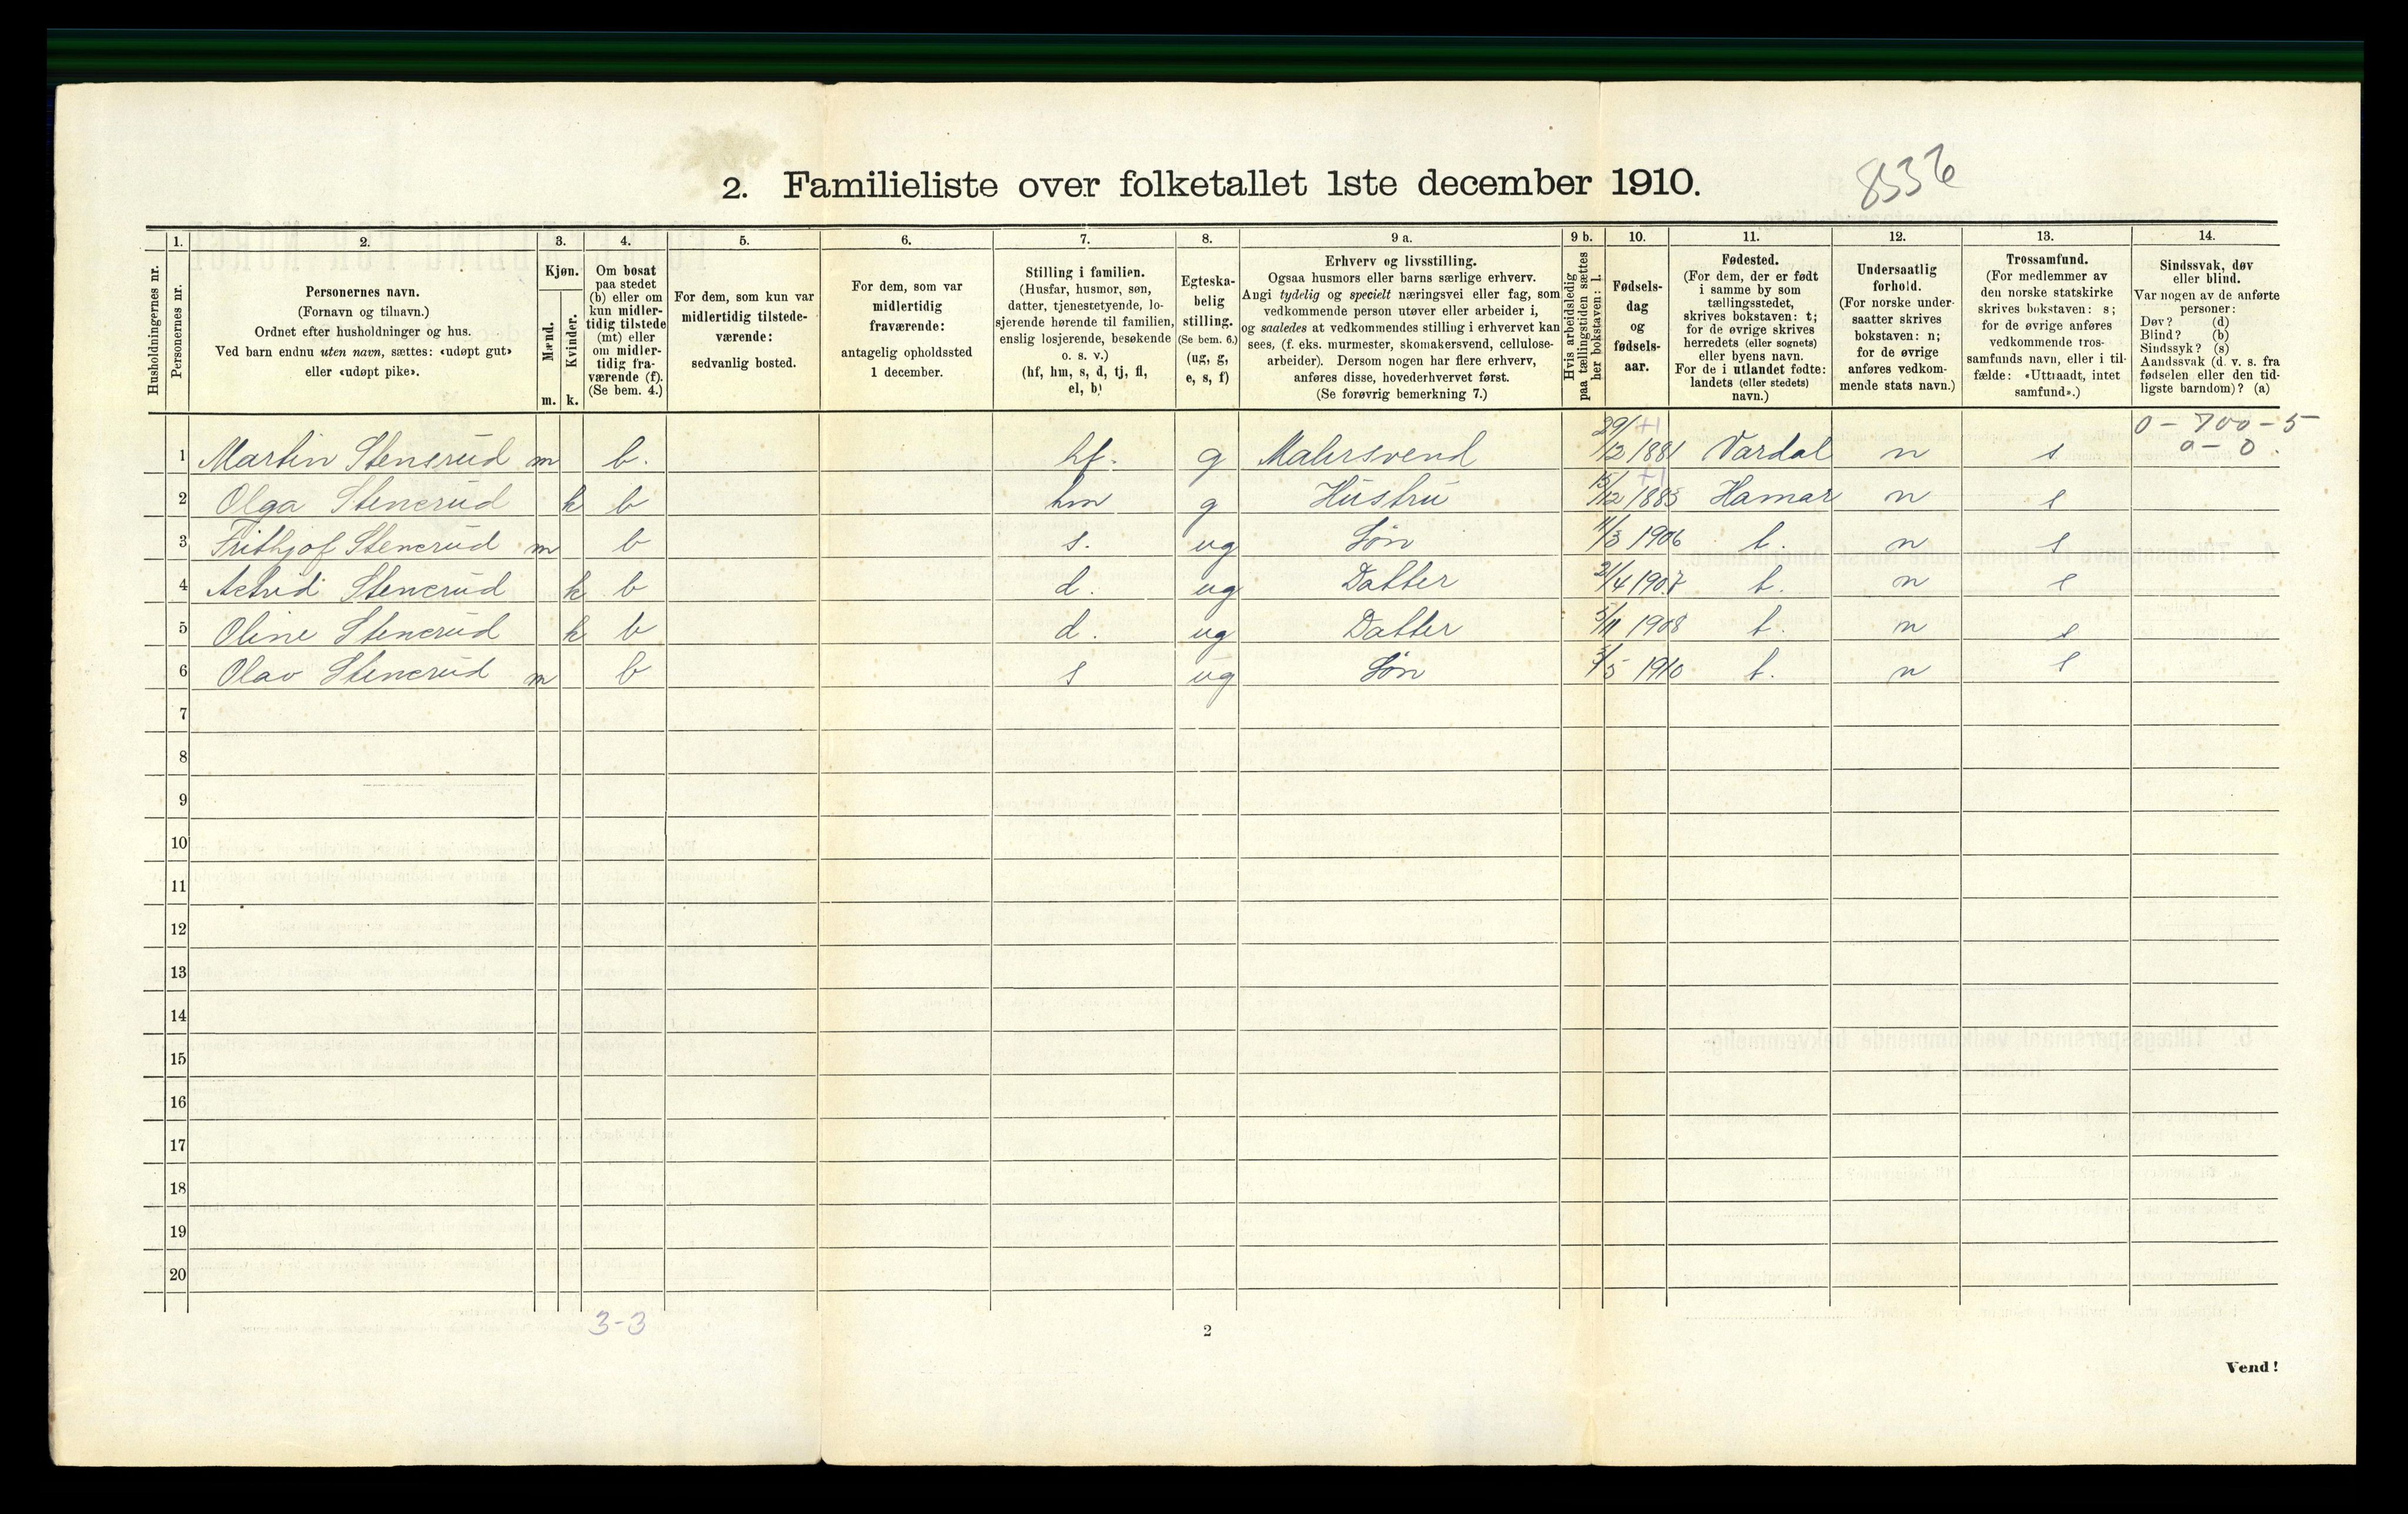 2. Familieliste over folketallet 1ste december 1910.
8536
1. 2. 3. 4. 5. 6. 7. 8. 9 a. 9 b. 10. 11. 12. 13. 14.
Husholdningernes nr.
Personernes nr.
Personernes navn.
(Fornavn og tilnavn.)
Ordnet efter husholdninger og hus.
Ved barn endnu uten navn, sættes: «udøpt gut»
eller «udøpt pike».
Kjøn.
Mænd.
Kvinder.
m. k.
Om bosat
paa stedet
(b) eller om
kun midler-
tidig tilstede
(mt) eller
om midler-
tidig fra-
værende (f).
(Se bem. 4.)
For dem, som kun var
midlertidig tilstede-
værende:
sedvanlig bosted.
For dem, som var
midlertidig
fraværende:
antagelig opholdssted
1 december.
Stilling i familien.
(Husfar, husmor, søn,
datter, tjenestetyende, lo-
sjerende hørende til familien,
enslig losjerende, besøkende
o. s. v.)
(hf, hm, s, d, tj, fl,
el, b)
Egteska-
belig
stilling.
(Se bem. 6.)
(ug, g,
e, s, f)
Erhverv og livsstilling.
Ogsaa husmors eller barns særlige erhverv.
Angi tydelig og specielt næringsvei eller fag, som
vedkommende person utøver eller arbeider i,
og saaledes at vedkommendes stilling i erhvervet kan
sees, (f. eks. murmester, skomakersvend, cellulose-
arbeider). Dersom nogen har flere erhverv,
anføres disse, hovederhvervet først.
(Se forøvrig bemerkning 7.)
Hvis arbeidsledig
paa tællingstiden sættes
her bokstaven: l.
Fødsels-
dag
og
fødsels-
aar.
Fødested.
(For dem, der er født
i samme by som
tællingsstedet,
skrives bokstaven: t;
for de øvrige skrives
herredets (eller sognets)
eller byens navn.
For de i utlandet fødte:
landets (eller stedets)
navn.)
Undersaatlig
forhold.
(For norske under-
saatter skrives
bokstaven: n;
for de øvrige
anføres vedkom-
mende stats navn.)
Trossamfund.
(For medlemmer av
den norske statskirke
skrives bokstaven: s;
for de øvrige anføres
vedkommende tros-
samfunds navn, eller i til-
fælde: «Uttraadt, intet
samfund».)
Sindssvak, døv
eller blind.
Var nogen av de anførte
personer:
Døv? (d)
Blind? (b)
Sindssyk? (s)
Aandssvak (d. v. s. fra
fødselen eller den tid-
ligste barndom)? (a)
0 - 700 - 5
0 - 0
1 Martin Stensrud m b. hf. g Malersvend 29/12 1881 Vardal n s
2 Olga Stensrud k b hm g Hustru 15/12 1885 Hamar n s
3 Frithjof Stensrud m b s. ug Søn 11/3 1906 t. n s
4 Astrid Stensrud k b d. ug Datter 21/4 1907 t. n s
5 Oline Stensrud k b d. ug Datter 5/11 1908 t. n s
6 Olav Stensrud m b s ug Søn /5 1910 t. n s
7
8
9
10
11
12
13
14
15
16
17
18
19
20
3-3
2
Vend!